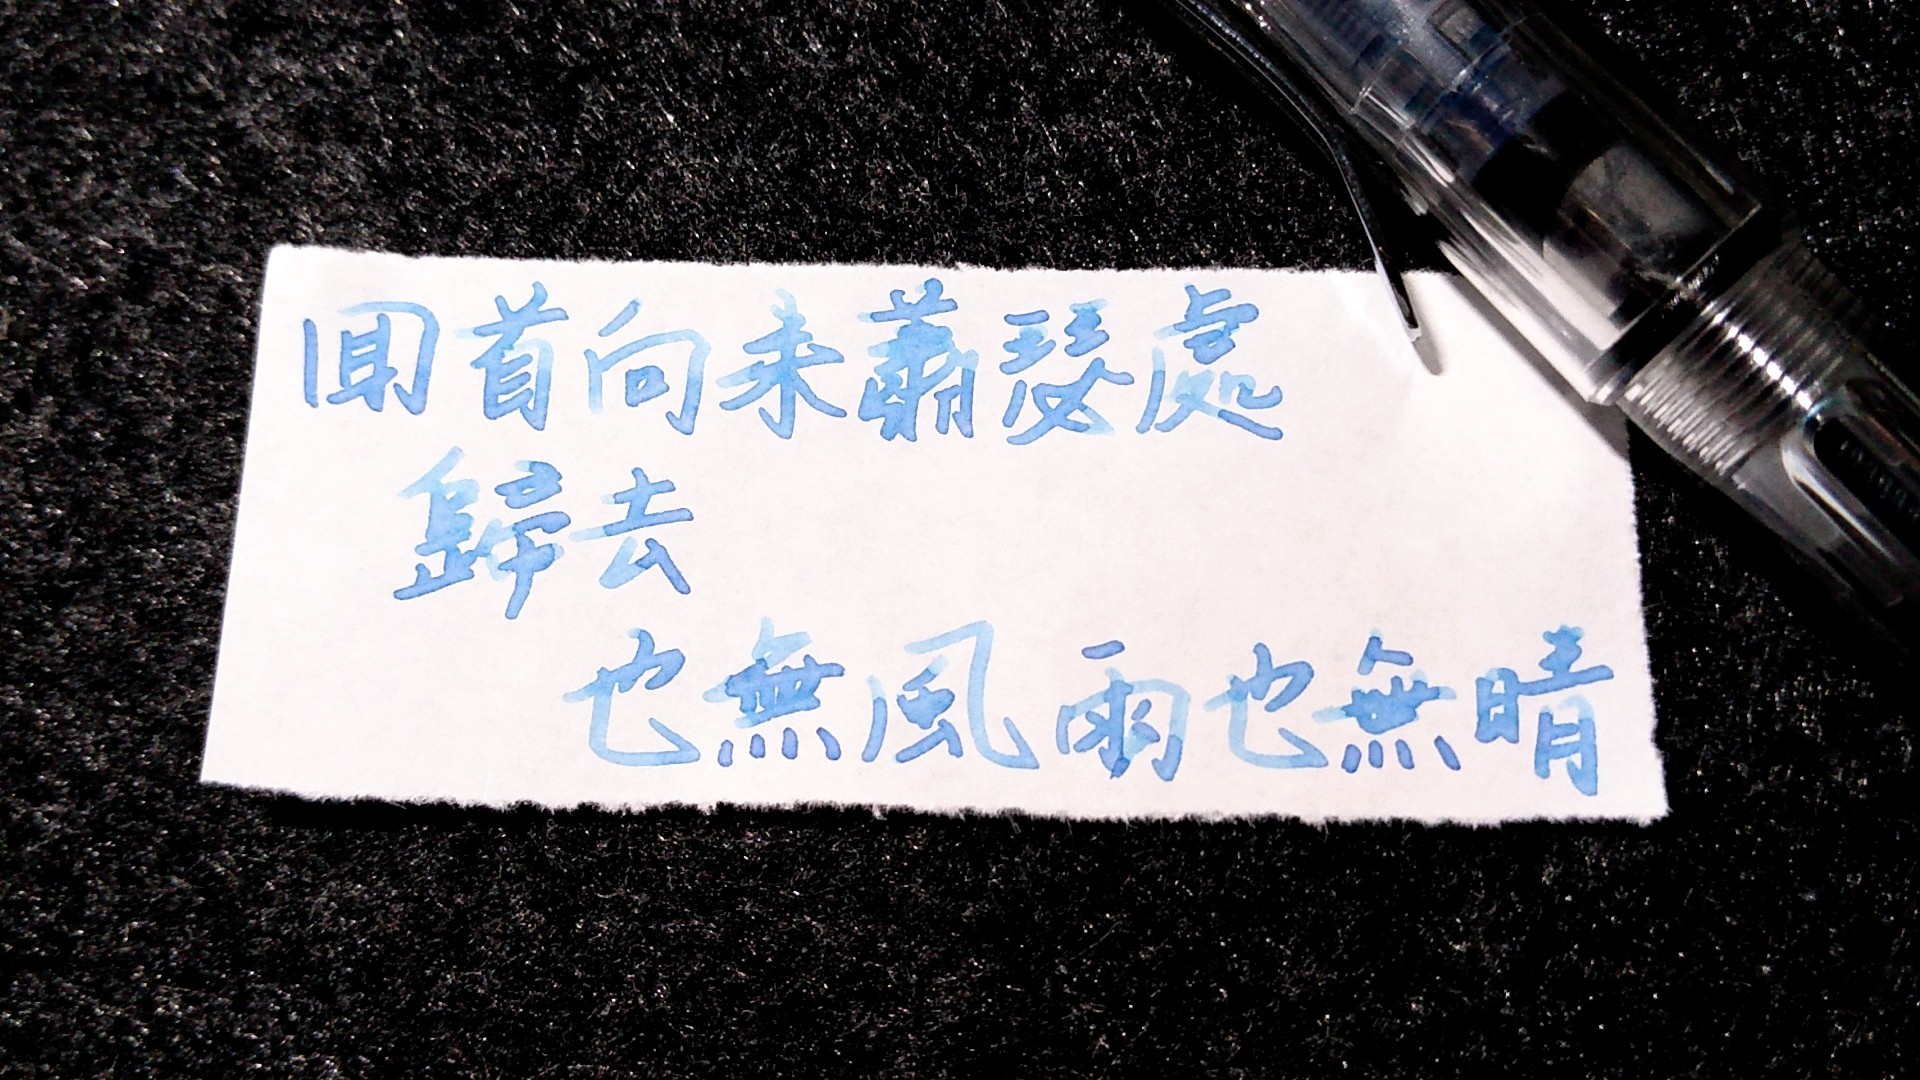 回首向来蕭瑟處
歸去
也無風雨也無晴